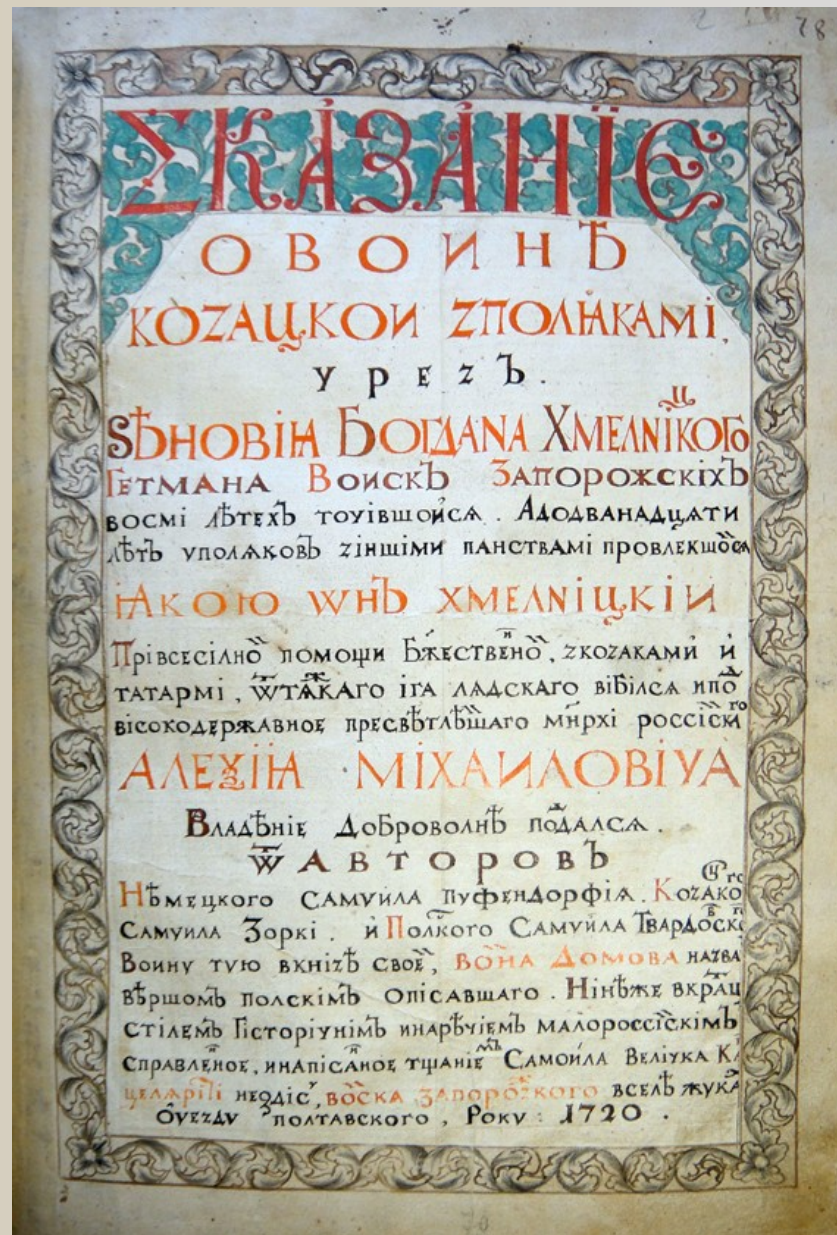 28
ΣКАЗАНЇЄ
О ВОИНѢ
КОZАЦКОИ ZПОЛѦКАМІ,
УРЕZЪ.
ЅѢНОВІꙖ БОГДАNА ХМЕЛNЇЦКОГО
ГЕТМАНА ВОИСКЪ ЗАПОРОЖСКІХЪ
ВОСМІ ЛѢТЕХЪ ТОЧІВШОЙСѦ. АДОДВАНАДЦѦТИ
ЛѢТЬ УПОЛѦКОВЪ ZІНШІМИ ПАНСТВАМІ ПРОВЛЕКШОЙСѦ
ꙖКОЮ ѠНЪ ХМЕЛNІЦКІИ
ПРІВСЕСІЛНОЙ ПОМОЩИ БЖЕСТВЕННОЙ, ZКОZАКАМИ И
ТАТАРМІ, ѾТѦЖКАГО ІГА ЛѦДСКАГО ВІБІЛСѦ ИПОД
ВІСОКОДЕРЖАВНОЕ ПРЕСВѢТЛѢЙШАГО МНРХІ РОССІЙСКАГО
АЛЕѮІꙖ МІХАИЛОВІЧА
ВЛАДѢНІЕ ДОБРОВОЛНѢ ПОДДАЛСѦ.
Ѿ АВТОРОВЪ
НѢМЕЦКОГО САМУИЛА ПУФЕНДОРФІѦ. КОZАЦКОГО
САМУИЛА ЗОРКІ. И ПОЛСКОГО САМУИЛА ТВАРДОВСКОГО
ВОИНУ ТУЮ ВКНІZѢ СВОЕЙ, ВОЙНА ДОМОВА НАZВА
ВѢРШОМЪ ПОЛСКІМЪ ОПІСАВШАГО. НІНѢЖЕ ВКРАТЦ
СТІЛЕМЪ ГІСТОРІЧНІМЪ ИНАРѢЧІЕМЪ МАЛОРОССІЙСКІМЪ
СПРАВЛЕНОЕ, ИНАПІСАНОЕ ТЩАНІЕМЪ САМОЙЛА ВЕЛІЧКА КА
ЦЕЛѦРІСТІ НЕГДІС, ВОЙСКА ЗАПОРОZКОГО ВСЕЛѢ ЖУКА
ОУЕZДУ ПОЛТАВСКОГО, РОКУ: 1720.